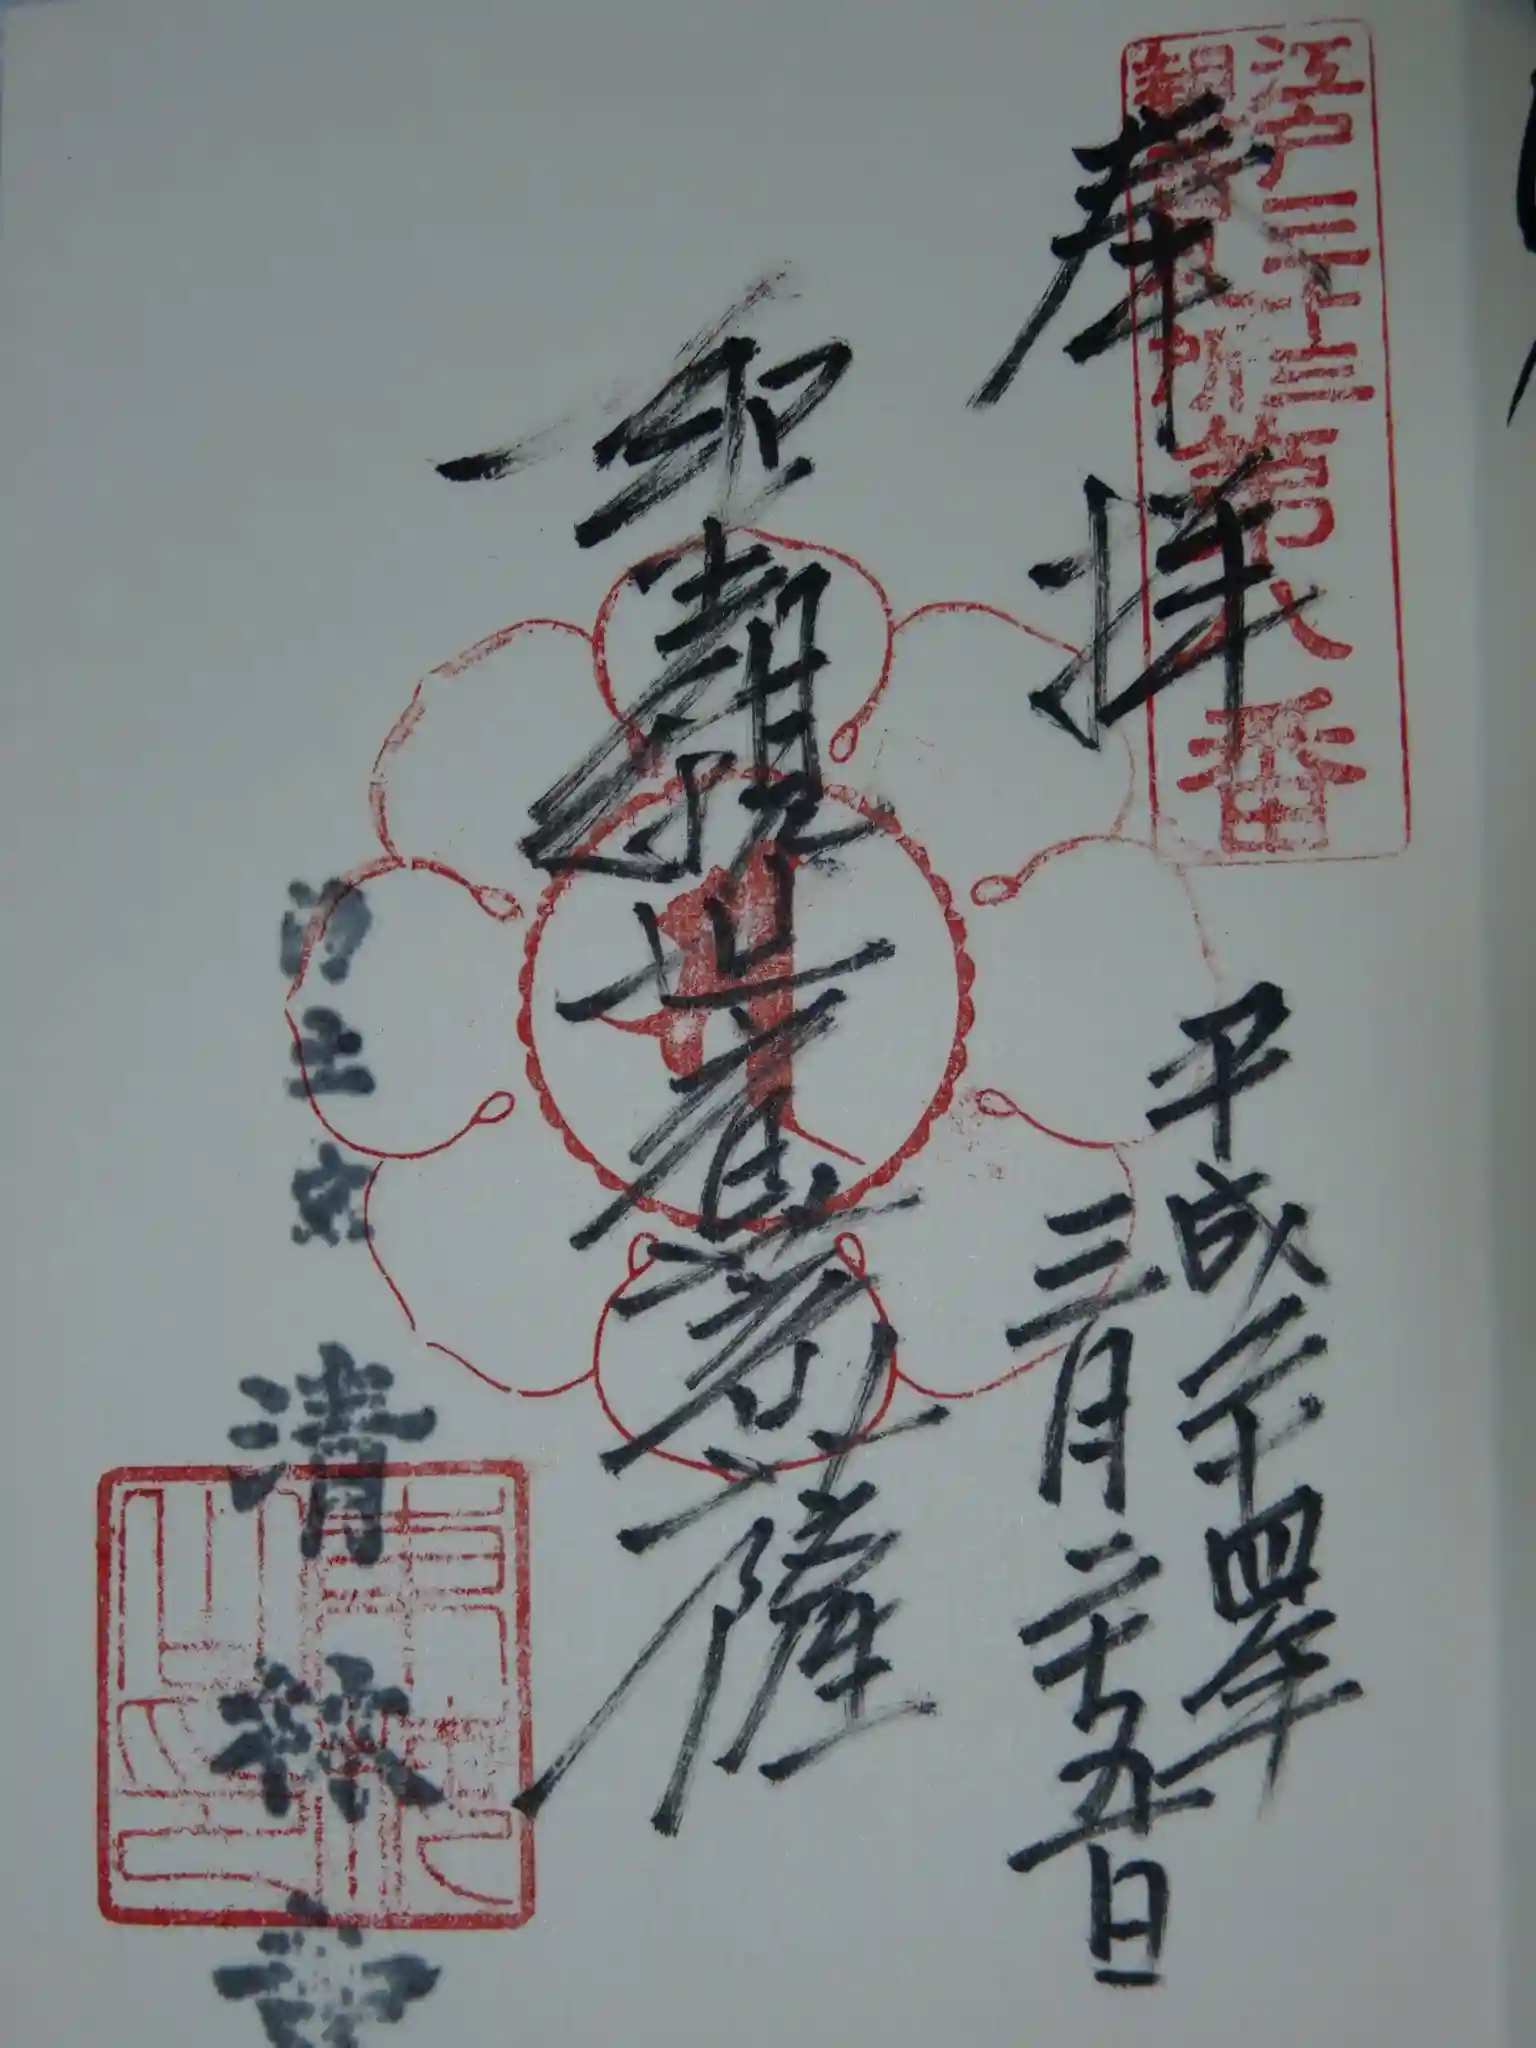 江戸三十三
観音札所
第八番
奉拝
平成二十四年
三月二十五日
聖観世音菩薩
浄土宗
清林寺